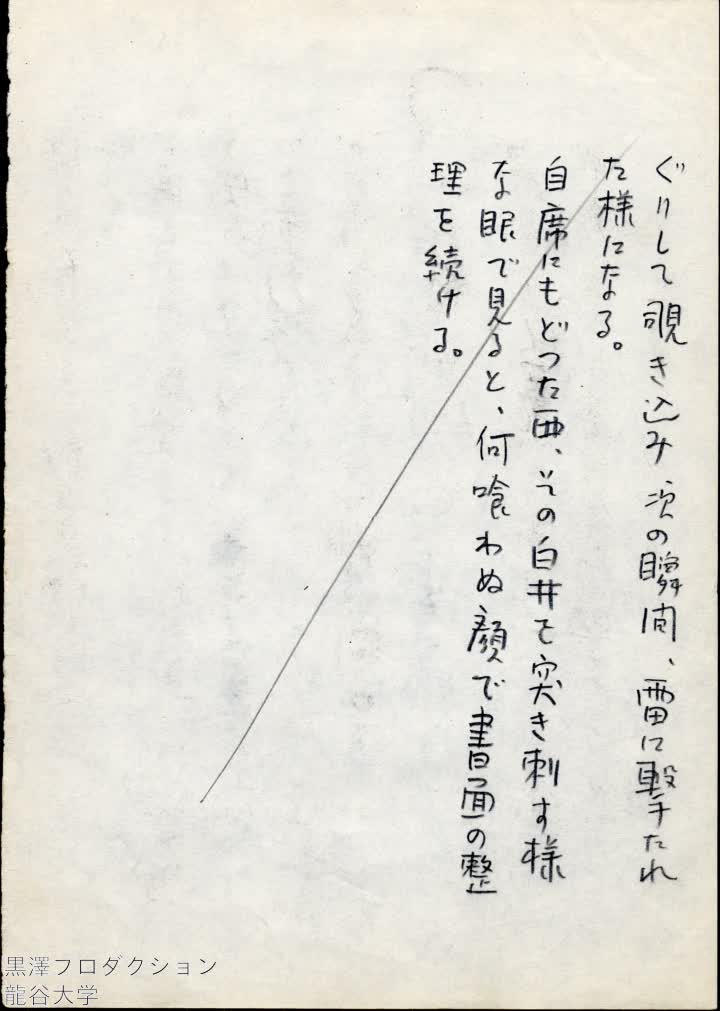 ぐりして覗き込み次の瞬间、雷に撃たれ
た様になる。
自席にもどつた西、その白井を突き刺す様
な眼で見ると、何喰わぬ顔で書面の整
理を続ける。
黒澤フロダクション
龍谷大学